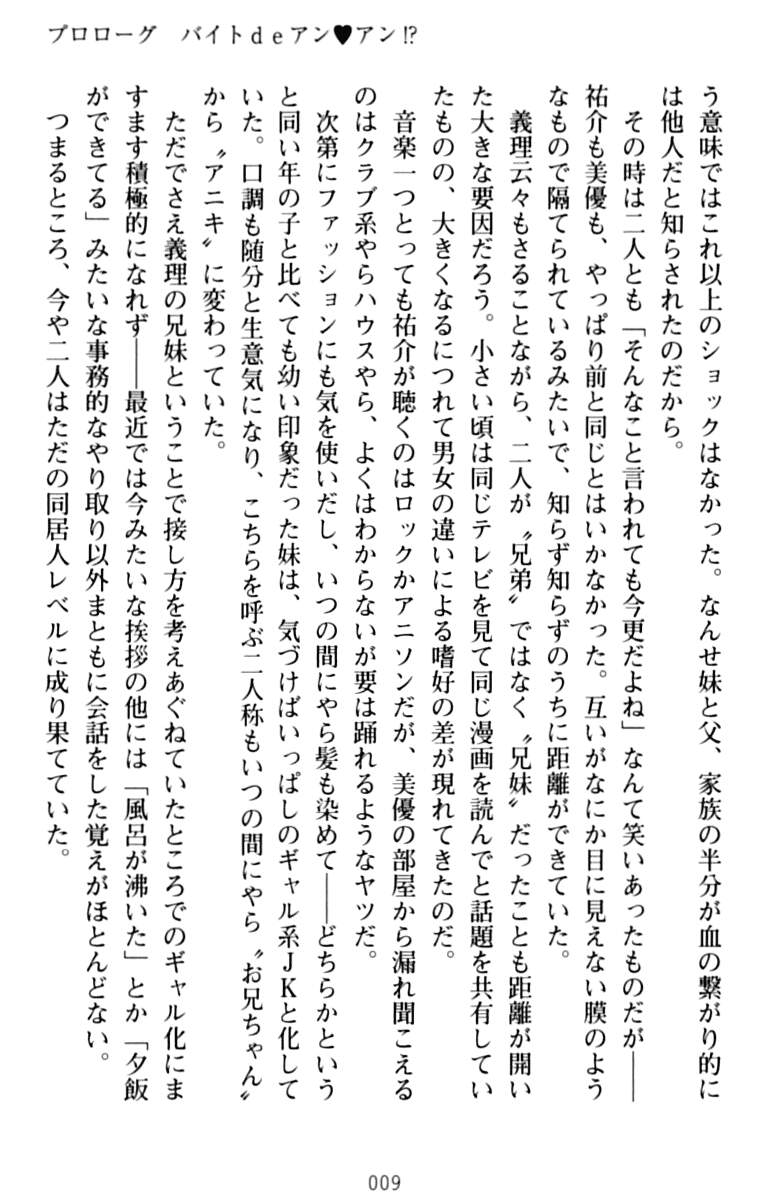 プロローグ　バイトdeアン♥アン!?
う意味ではこれ以上のショックはなかった。なんせ妹と父、家族の半分が血の繋がり的に
は他人だと知らされたのだから。
　その時は二人とも「そんなこと言われても今更だよね」なんて笑いあったものだが――
祐介も美優も、やっぱり前と同じとはいかなかった。互いがなにか目に見えない膜のよう
なもので隔てられているみたいで、知らず知らずのうちに距離ができていた。
　義理云々もさることながら、二人が〝兄弟〟ではなく〝兄妹〟だったことも距離が開い
た大きな要因だろう。小さい頃は同じテレビを見て同じ漫画を読んでと話題を共有してい
たものの、大きくなるにつれて男女の違いによる嗜好の差が現れてきたのだ。
　音楽一つとっても祐介が聴くのはロックかアニソンだが、美優の部屋から漏れ聞こえる
のはクラブ系やらハウスやら、よくはわからないが要は踊れるようなヤツだ。
　次第にファッションにも気を使いだし、いつの間にやら髪も染めて――どちらかという
と同い年の子と比べても幼い印象だった妹は、気づけばいっぱしのギャル系ＪＫと化して
いた。口調も随分と生意気になり、こちらを呼ぶ二人称もいつの間にやら〝お兄ちゃん〟
から〝アニキ〟に変わっていた。
　ただでさえ義理の兄妹ということで接し方を考えあぐねていたところでのギャル化にま
すます積極的になれず――最近では今みたいな挨拶の他には「風呂が沸いた」とか「夕飯
ができてる」みたいな事務的なやり取り以外まともに会話をした覚えがほとんどない。
　つまるところ、今や二人はただの同居人レベルに成り果てていた。
009